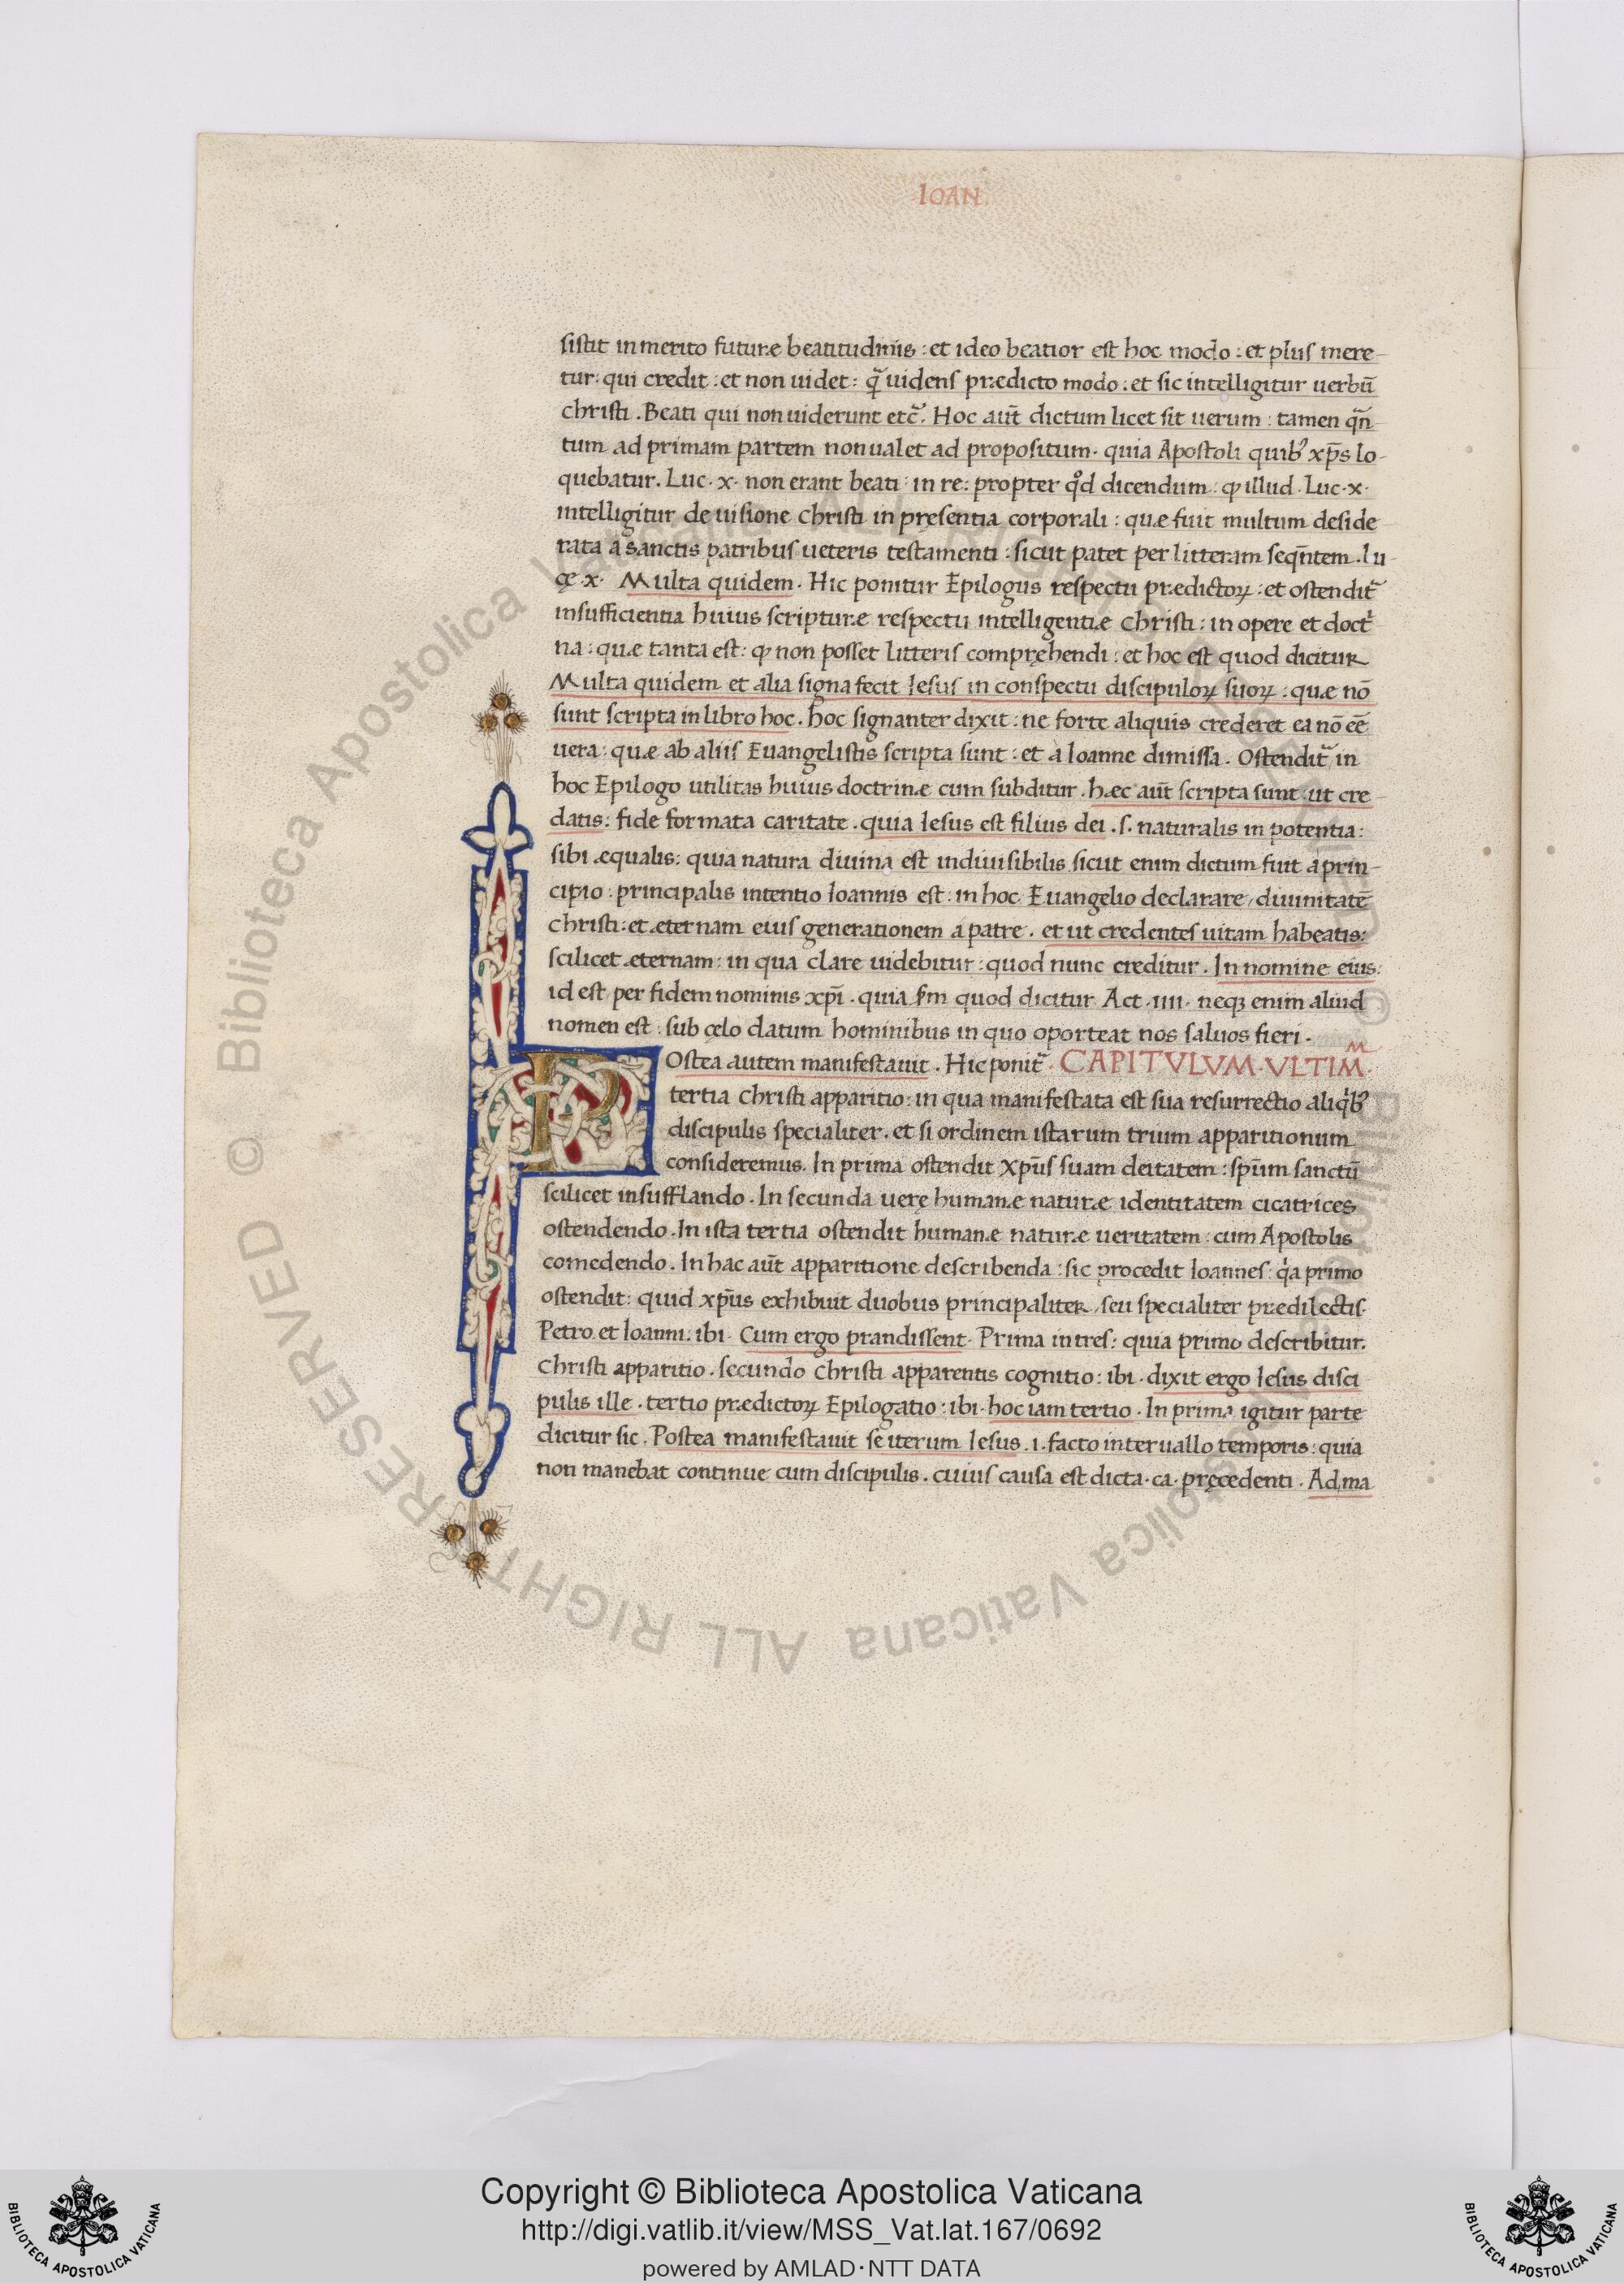 IOAN.
sistit in merito futuræ beatitudinis : et ideo beatior est hoc modo : et plus mere-
tur : qui credit : et non uidet : q̃ uidens prædicto modo : et sic intelligitur uerbũ
christi . Beati qui non uiderunt etc̃ . Hoc aut̃ dictum licet sit uerum : tamen q̃n-
tum ad primam partem non ualet ad propositum . quia Apostoli quibꝰ xp̃s lo-
quebatur . Luc . x . non erant beati : in re : propter qd̊ dicendum : ꝙ illud . Luc . x .
intelligitur de uisione christi in pręsentia corporali : quæ fuit multum deside
rata a sanctis patribus ueteris testamenti : sicut patet per litteram seqñtem . Lu-
cę . x . Multa quidem . Hic ponitur Epilogus respectu prædictoꝝ : et ostendit᷈
insufficientia huius scripturæ respectu intelligentiæ christi : in opere et doctⁱ
na : quæ tanta est : ꝙ non posset litteris compręhendi : et hoc est quod dicitur
Multa quidem et alia signa fecit Iesus in conspectu discipuloꝝ suoꝝ : quæ nõ
sunt scripta in libro hoc . hoc signanter dixit : ne forte aliquis crederet ea nõ eẽ
uera : quæ ab aliis Euangelistis scripta sunt : et a Ioanne dimissa . Ostendit᷈ in
hoc Epilogo utilitas huius doctrinæ cum subditur . hæc aut̃ scripta sunt : ut cre
datis : fide formata caritate . quia Iesus est filius dei . s . naturalis in potentia :
sibi æqualis : quia natura diuina est indiuisibilis sicut enim dictum fuit a prin-
cipio : principalis intentio Ioannis est : in hoc Euangelio declarare, diuinitatẽ
christi : et æternam eius generationem a patre . et ut credentes uitam habeatis :
scilicet æternam : in qua clare uidebitur : quod nunc creditur . In nomine eius :
id est per fidem nominis xp̃i . quia ẜm quod dicitur Act . iiii . neqꝫ enim aliud
nomen est : sub cęlo datum hominibus in quo oporteat nos saluos fieri .
POstea autem manifestauit . Hic ponit᷈ . CAPITVLVM . VLTIM̃ .
tertia christi apparitio : in qua manifestata est sua resurrectio aliqⁱbꝰ
discipulis specialiter . et si ordinem istarum trium apparitionum
consideremus . In prima ostendit xp̃us suam deitatem : sp̃um sanctũ
scilicet insufflando . In secunda uerę humanæ naturæ identitatem cicatrices
ostendendo . In ista tertia ostendit humanæ naturæ ueritatem : cum Apostolis
comedendo . In hac aut̃ apparitione describenda : sic procedit Ioannes : qⁱa primo
ostendit : quid xp̃us exhibuit duobus principaliter, seu specialiter prædilectis .
Petro et Ioanni : ibi . Cum ergo prandissent . Prima in tres : quia primo describitur .
christi apparitio . secundo christi apparentis cognitio : ibi . dixit ergo Iesus disci
pulis ille . tertio prædictoꝝ Epilogatio : ibi . hoc iam tertio . In prima igitur parte
dicitur sic . Postea manifestauit se iterum Iesus . i . facto interuallo temporis : quia
non manebat continue cum discipulis . cuius causa est dicta . ca . pręcedenti . Ad ma
© Biblioteca Apostolica Vaticana ALL RIGHTS RESERVED
© Biblioteca Apostolica Vaticana ALL RIGHTS RESERVED
Copyright © Biblioteca Apostolica Vaticana
http://digi.vatlib.it/view/MSS_Vat.lat.167/0692
powered by AMLAD·NTT DATA
BIBLIOTECA APOSTOLICA VATICANA
BIBLIOTECA APOSTOLICA VATICANA